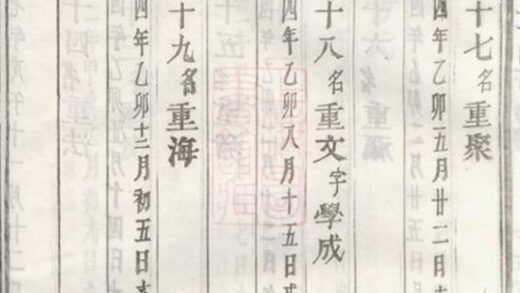 十七名重聚
四年乙卯五月廿二日
十八名重文字學成
四年乙卯八月十五日
十九名重海
四年乙卯十二月初五日